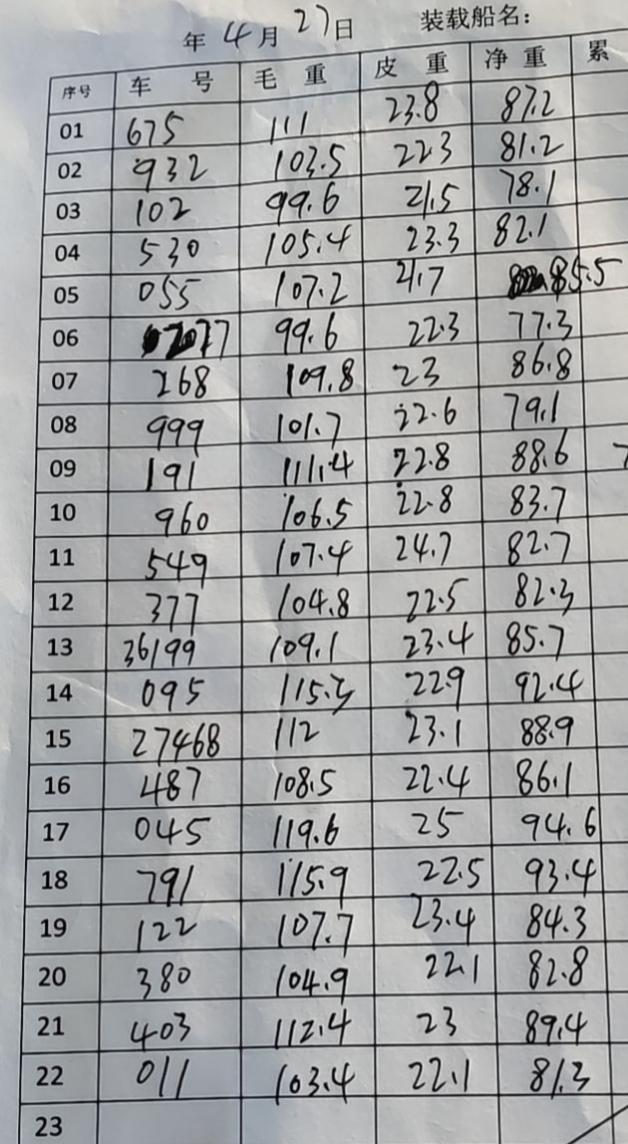 年 4月 27日 装载船名：
序号 车 号 毛 重 皮 重 净 重 累
01 675 111 23.8 87.2
02 932 103.5 22.3 81.2
03 102 99.6 21.5 78.1
04 530 105.4 23.3 82.1
05 055 107.2 21.7 85.5
06 077 99.6 22.3 77.3
07 268 109.8 23 86.8
08 999 101.7 22.6 79.1
09 191 111.4 22.8 88.6
10 960 106.5 22.8 83.7
11 549 107.4 24.7 82.7
12 377 104.8 22.5 82.3
13 36199 109.1 23.4 85.7
14 095 115.3 22.9 92.4
15 27468 112 23.1 88.9
16 487 108.5 22.4 86.1
17 045 119.6 25 94.6
18 791 115.9 22.5 93.4
19 122 107.7 23.4 84.3
20 380 104.9 22.1 82.8
21 403 112.4 23 89.4
22 011 103.4 22.1 81.3
23